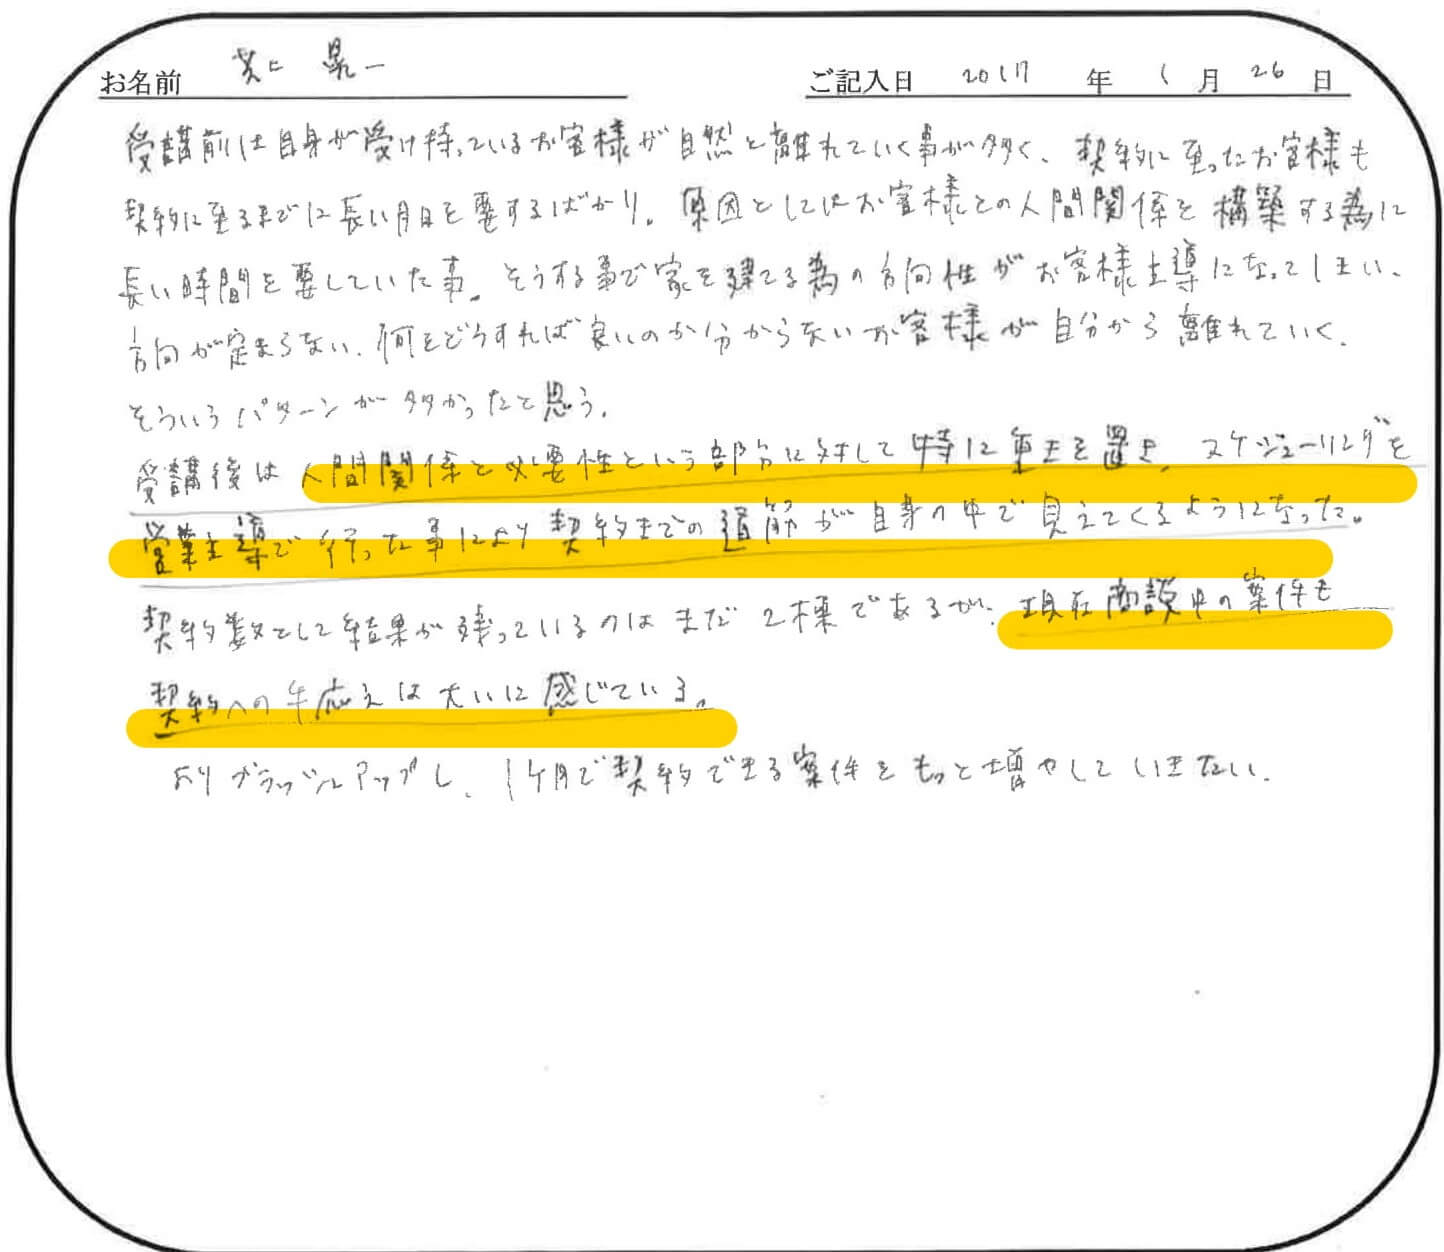 お名前 晃一 ご記入日 2017 年 1 月 26 日
受講前は自身が受け持っているお客様が自然と離れていく事が多く、契約に至ったお客様も
契約に至るまでに長い月日を要するばかり。原因としてはお客様との人間関係を構築する為に
長い時間を要していた事。そうする事で家を建てる為の方向性がお客様主導になってしまい、
方向が定まらない、何をどうすれば良いのか分からないお客様が自分から離れていく、
そういうパターンが多かったと思う。
受講後は人間関係と必要性という部分に対して特に重きを置き、スケジューリングを
営業主導で行った事により契約までの道筋が自身の中で見えてくるようになった。
契約数として結果が残っているのはまだ2棟であるが、現在商談中の案件も
契約への手応えは大いに感じている。
よりブラッシュアップし、1ヶ月で契約できる案件をもっと増やしていきたい。